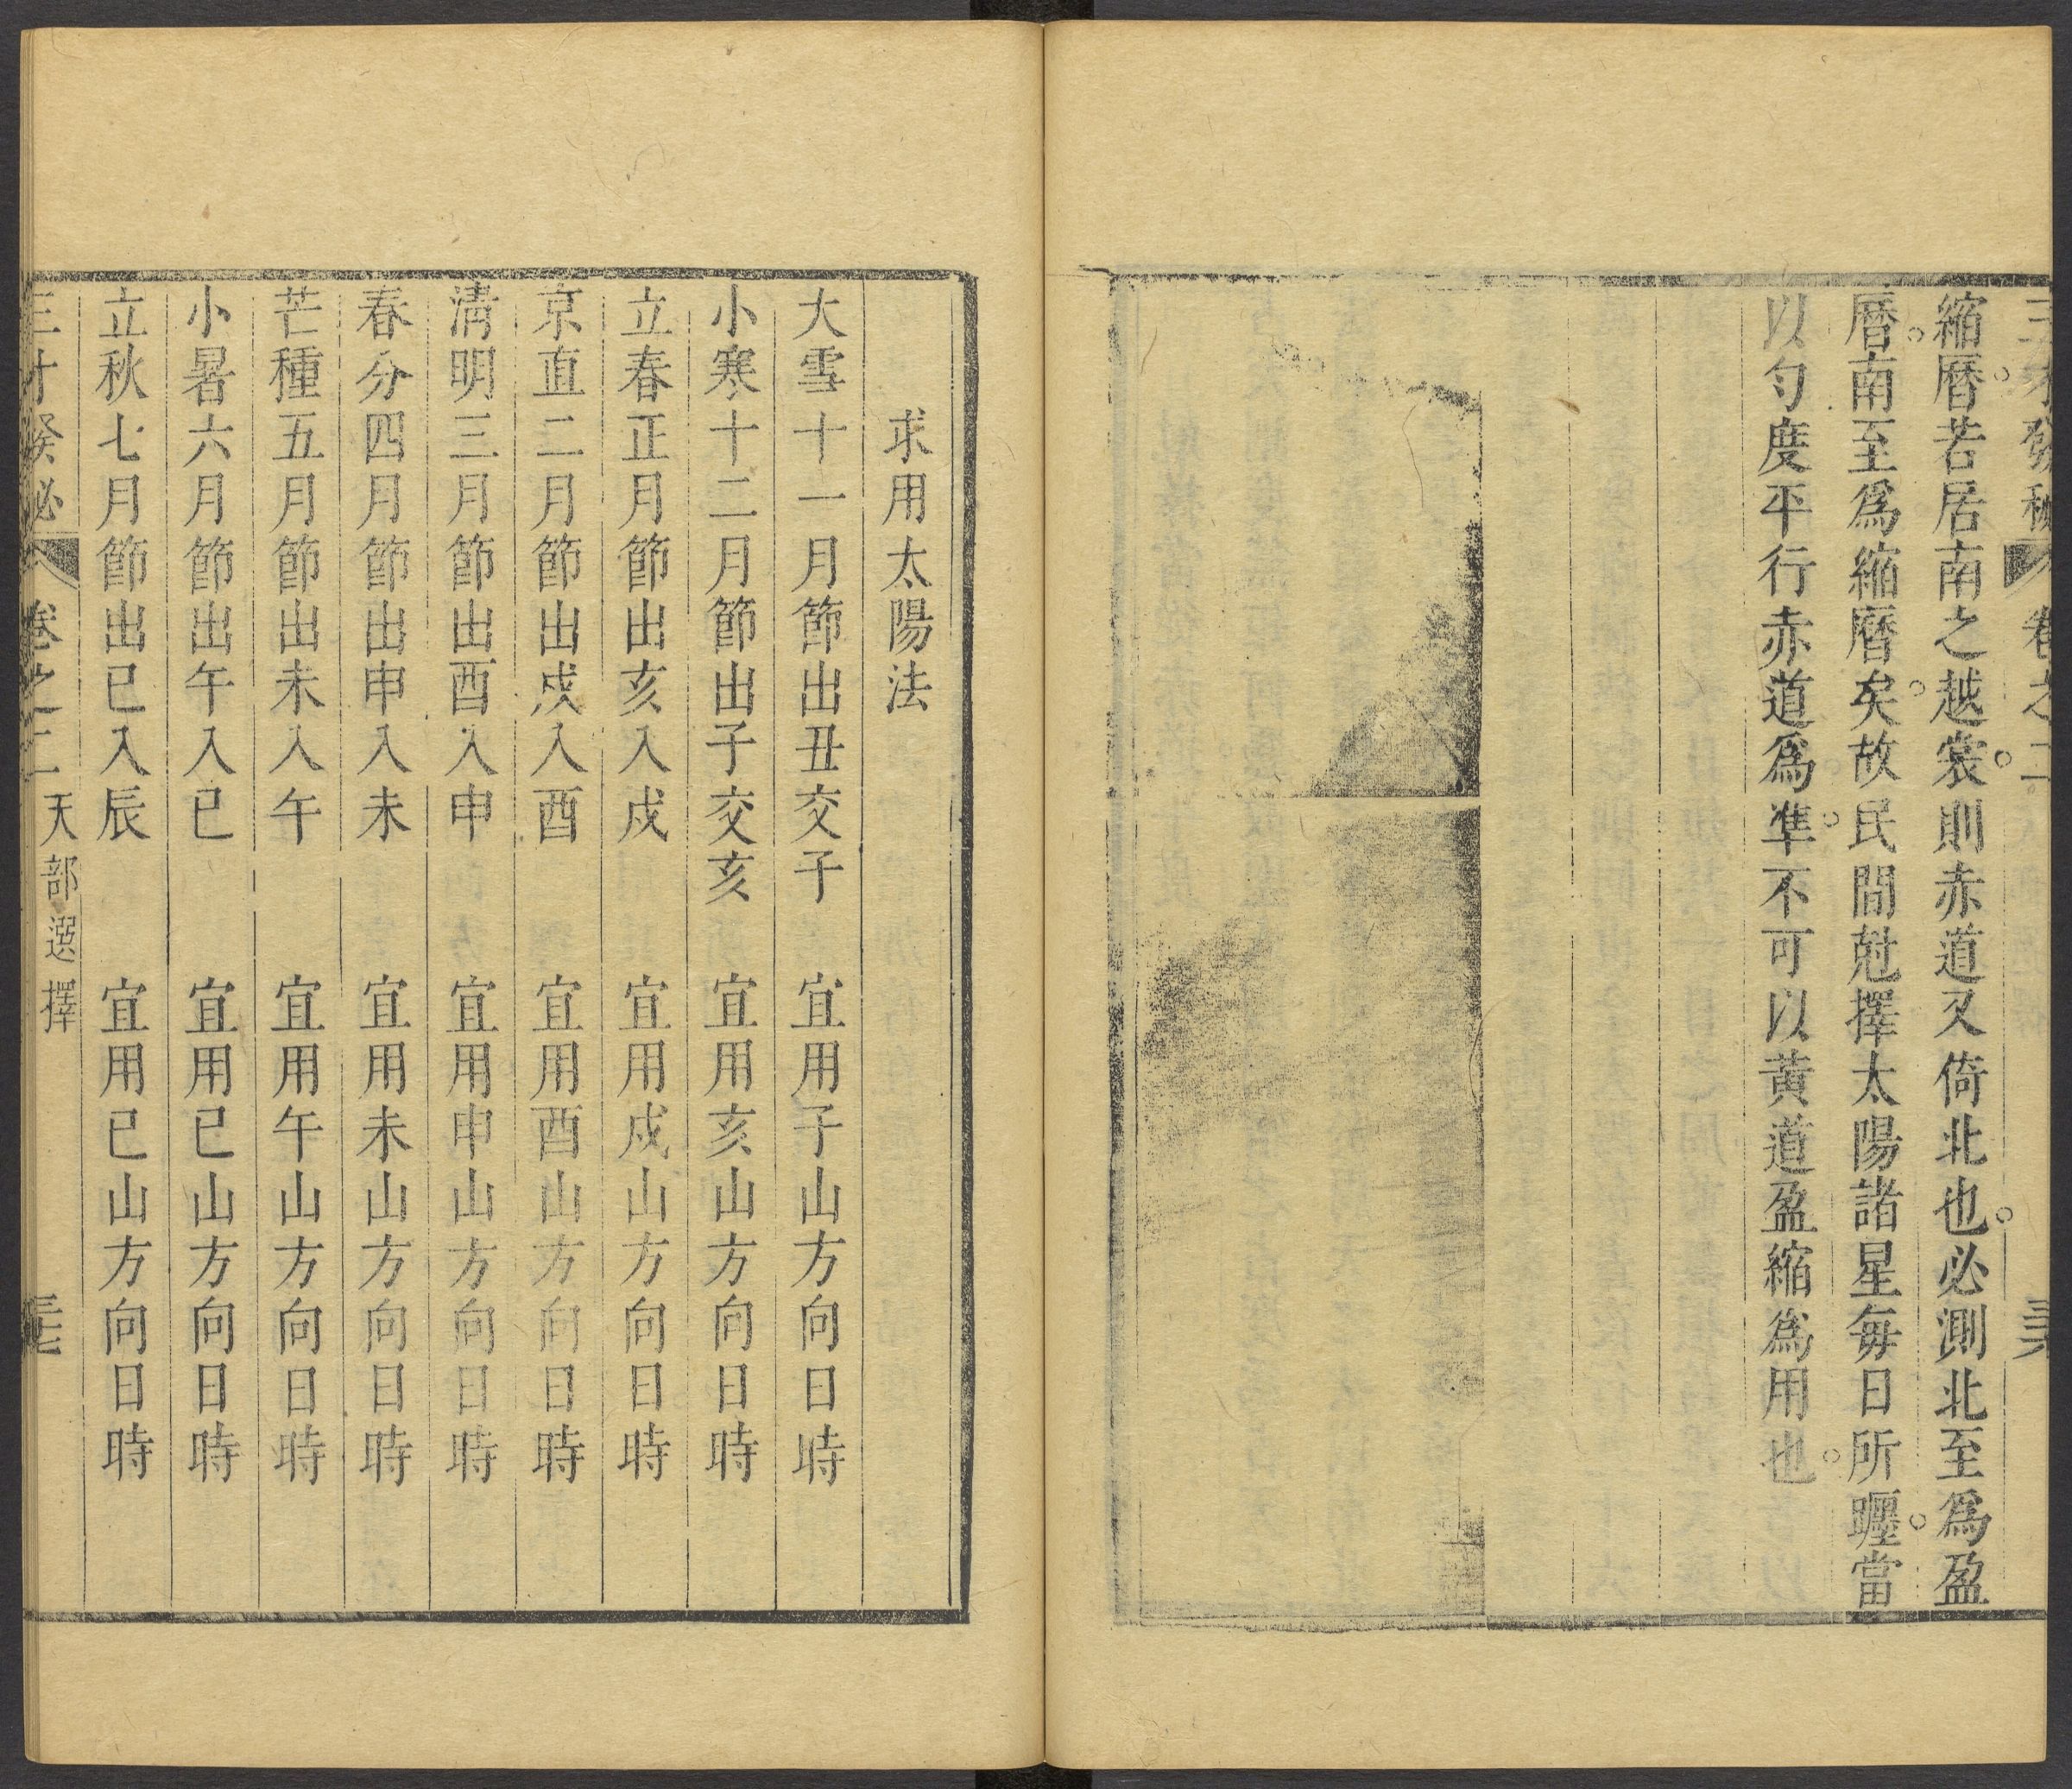 三才發秘 卷之二
縮曆若居南之越裳則赤道又倚北也必測北至爲盈
曆南至爲縮曆矣故民間尅擇太陽諸星每日所躔當
以勻度平行赤道爲準不可以黃道盈縮爲用也
求用太陽法
大雪十一月節出丑交子 宜用子山方向日時
小寒十二月節出子交亥 宜用亥山方向日時
立春正月節出亥入戌 宜用戌山方向日時
京直二月節出戌入酉 宜用酉山方向日時
清明三月節出酉入申 宜用申山方向日時
春分四月節出申入未 宜用未山方向日時
芒種五月節出未入午 宜用午山方向日時
小暑六月節出午入巳 宜用巳山方向日時
立秋七月節出巳入辰 宜用巳山方向日時
三才發秘 卷之二 天部選擇 三十七